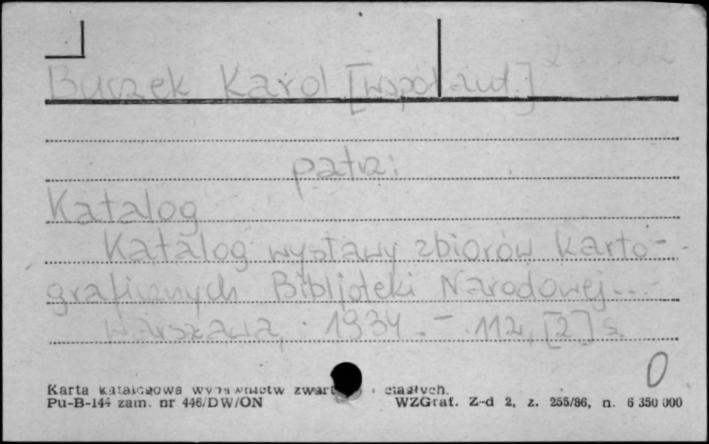 Buczek Karol [współaut.]
patrz:
Katalog
Katalog wystawy zbiorów karto-
graficznych Bibljoteki Narodowej...
Warszawa, 1934. - 112, [2] s.
0
Karta katalogowa wydawnictw zwartych i ciągłych.
Pu-B-144 zam. nr 446/DW/ON WZGraf. Z-d 2, z. 255/86, n. 6 350 000